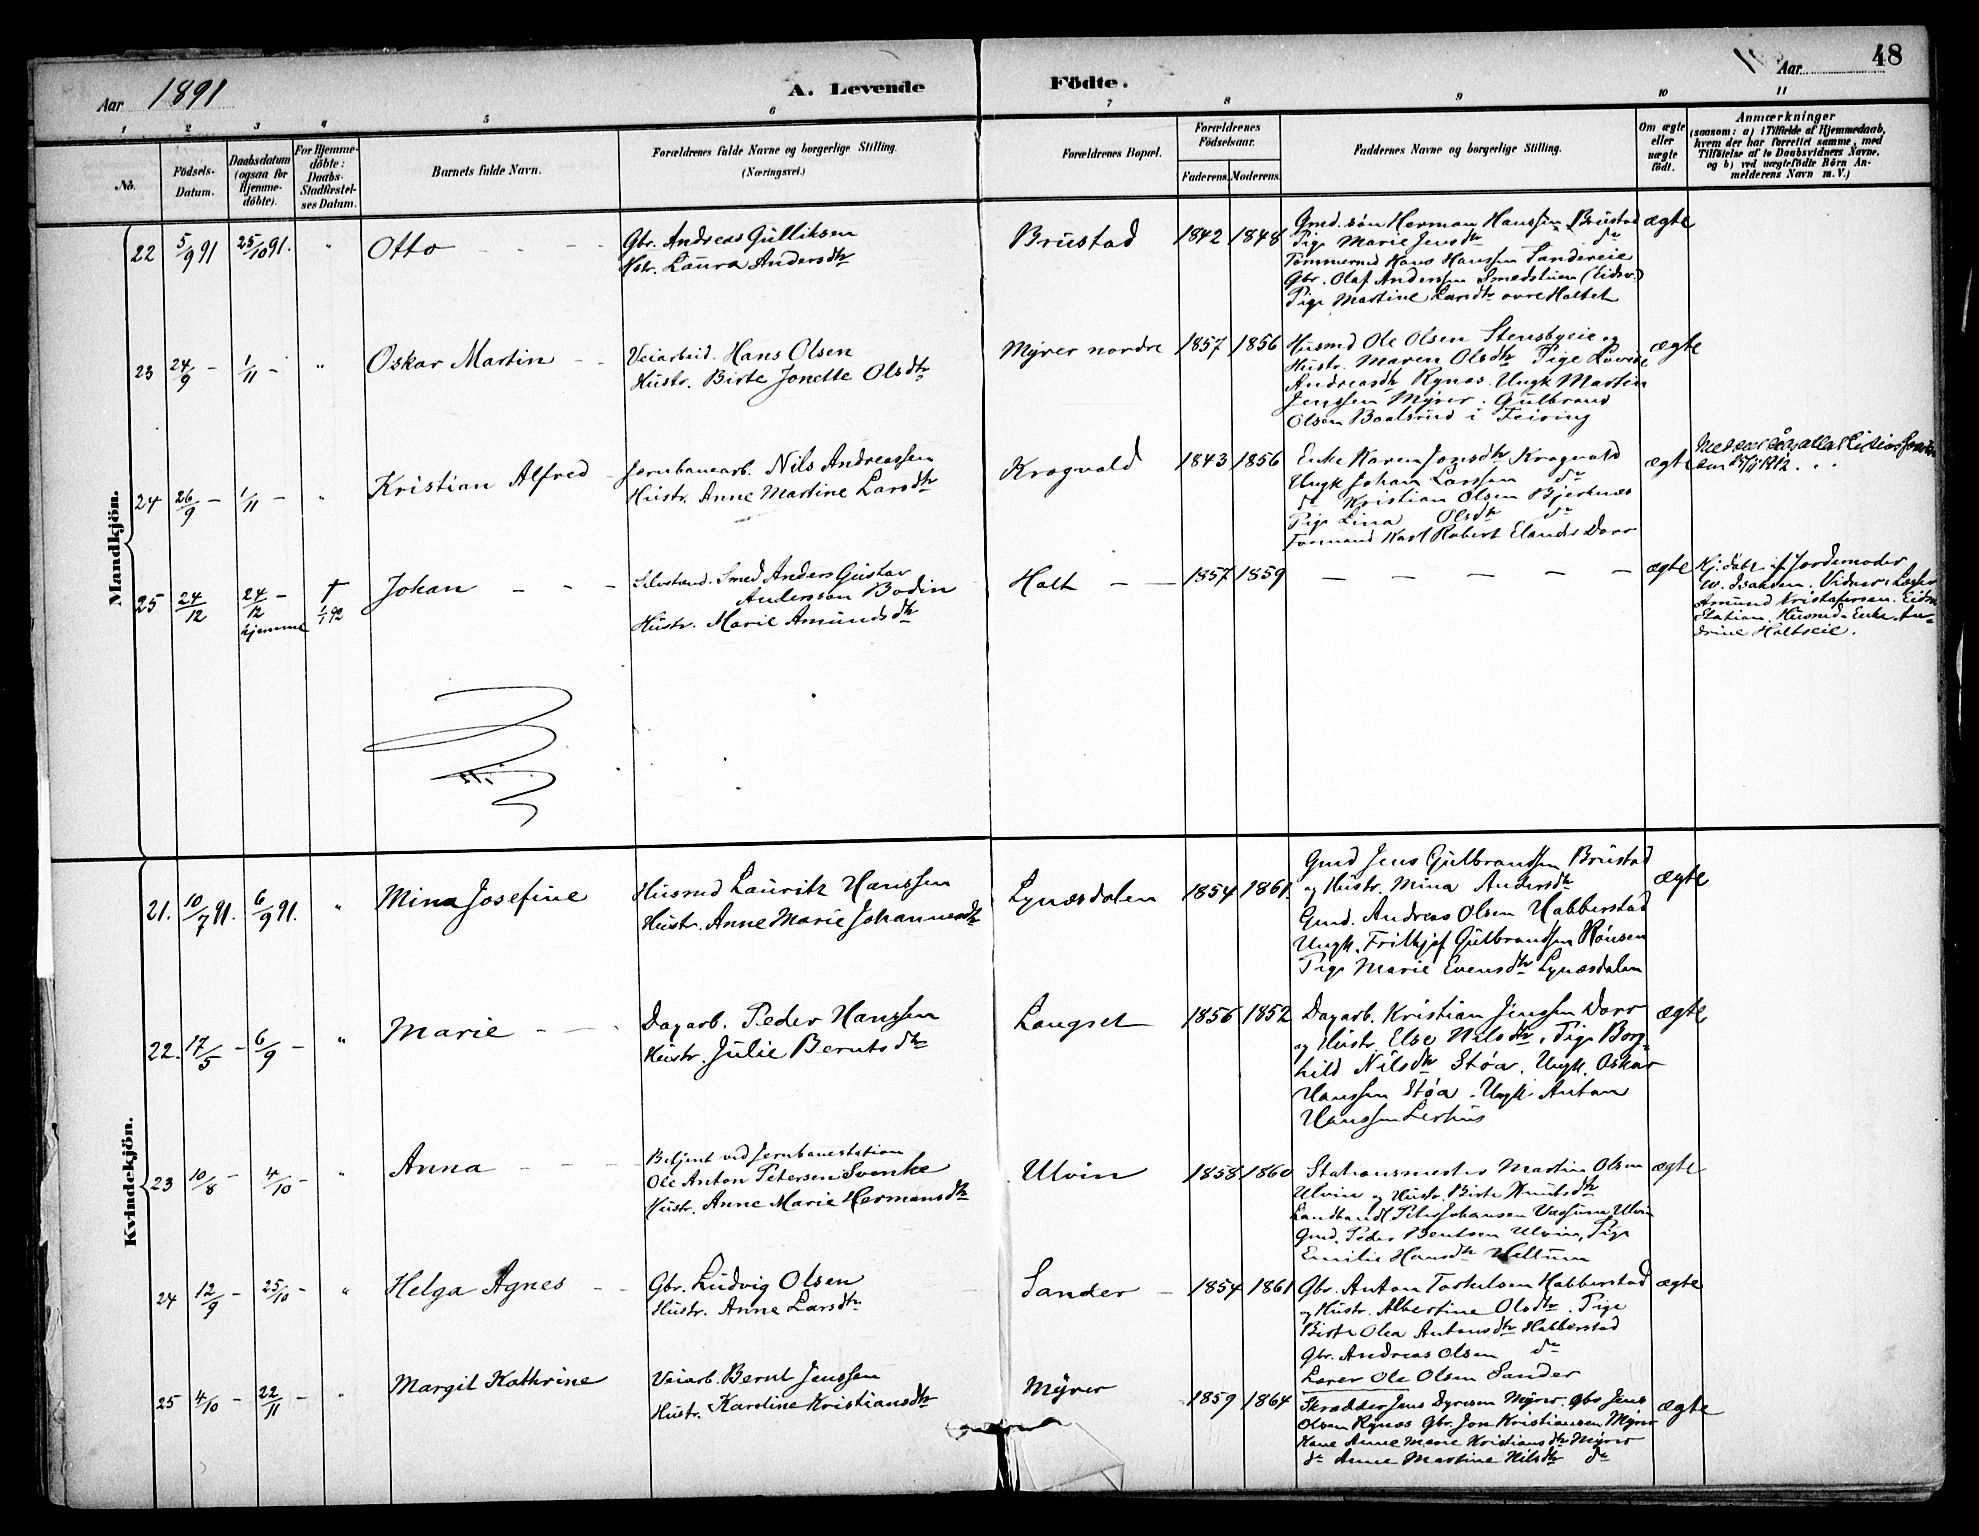 48
Aar 1891
A. Levende Födte.
Aar
1 2 3 4 5 6 7 8 9 10 11
No.
Födsels-Datum.
Daabsdatum (ogsaa for Hjemme-döbte).
For Hjemme-döbte: Daabs-Stadfæstel-ses Datum.
Barnets fulde Navn.
Forældrenes fulde Navne og borgerlige Stilling.
(Næringsvei.)
Forældrenes Bopæl.
Forældrenes Födselsaar.
Faderens. Moderens.
Faddernes Navne og borgerlige Stilling.
Om ægte eller uægte födt.
Anmærkninger
(saasom: a) i Tilfælde af Hjemmedaab, hvem der har forrettet samme, med Tilföielse af to Daabsvidners Navne, og b) ved uægtefödte Börn An-melderens Navn m. V.)
Mandkjön.
22 5/9 91 25/10 91. " Otto
Gbr. Andreas Gulliksen
Hstr. Laura Andersdtr
Brustad 1842 1848
Gmd. sön Herman Hanssen Brustad
Pige Marie Jensdtr do
Tømmermd Hans Hanssen Sandereie
Gbr. Olaf Anderssen Smedstuen (Eidsv.)
Pige Martine Larsdtr øvre Holtet
ægte
23 24/9 - 1/11 - " Oskar Martin
Veiarbeid. Hans Olsen
Hustr. Birte Jonette Olsdtr
Myrer nordre 1857 1856
Husmd Ole Olsen Stensbyeie og
Hustr. Maren Olsdtr Pige Lovise
Andreasdtr Rynas. Ungk Martin
Jenssen Myrer. Gulbrand
Olsen Baalsrud i Feiring
ægte
24 26/9 - 1/11 - " Kristian Alfred
Jernbanearb. Nils Andreassen
Hustr. Anne Martine Larsdtr
Krogvold 1843 1856
Enke Karen Jonsdtr Krogvold
Ungk Johan Larssen do
do Kristian Olsen Bjerknes
Pige Lina Olsdtr do
Formand Karl Robert Elander Dorr
ægte
25 24/12 24/12 - hjemme † 1/1 92 Johan
Selvstænd. Smed Anders Gustav
Andersson Bodin
Hustr. Marie Amundsdtr
Holt 1857 1859
ægte
Hj. døbt af Jordemoder
W. Isaksen. Vidner:
Amund Kristofersen. Eidsv.
Station. Husmd. Enke An-
drine Holtseie.
Kvindekjön.
21. 10/7 91. 6/9 91. " Mina Josefine
Husmd Lauritz Hanssen
Hustr. Anne Marie Johannesdtr
Lynæsdalen 1854 1861.
Gmd Jens Gulbrandssen Brustad
og Hustr. Mina Andersdtr
Gmd. Andreas Olsen Habberstad
Ungk. Frithjof Gulbrandssen Rønsen
Pige Marie Evensdtr Lynæsdalen
ægte
22. 17/5 - 6/9 - " Marie
Dagarb. Peder Hanssen
Hustr. Julie Berntsdtr
Langset 1856 1852
Dagarb. Kristian Jenssen Dorr
og Hustr. Else Nilsdtr, Pige Borg-
hild Nilsdtr Støa. Ungk. Oskar
Hanssen Støa. Ungk. Anton
Hanssen Lerhus
ægte
23 10/8 - 4/10 - " Anna
Betjent ved Jernbanestation
Ole Anton Petersen Svenke
Hustr. Anne Marie Hermansdtr
Ulvin 1858 1860
Stationsmester Martin Olsen
Ulvin og Hustr. Birte Knutsdtr
Landhandl Peter Johansen Ulvin
Gmd. Peder Bentsen Ulvin, Pige
Emilie Hansdtr
ægte
24 12/9 - 25/10 - " Helga Agnes
Gbr. Ludvig Olsen
Hustr. Anne Larsdtr
Sander 1854 1861
Gbr. Anton Torkelsen Habberstad
og Hustr. Albertine Olsdtr. Pige
Birte Olea Antonsdtr Habberstad
Gbr. Andreas Olsen do
Lærer Ole Olsen Sander
ægte
25 4/10 - 22/11 - " Margit Kathrine
Veiarb. Bernt Jenssen
Hustr. Karoline Kristiansdtr
Myrer 1859 1864
Skrædder Jens Dyresen Myrer. Gbr Jens
Olsen Rynas Gbr. Jon Kristiansen Myrer
Kone Anne Marie Kristiansdtr Myrer
do Anne Martine Nilsdtr do
ægte